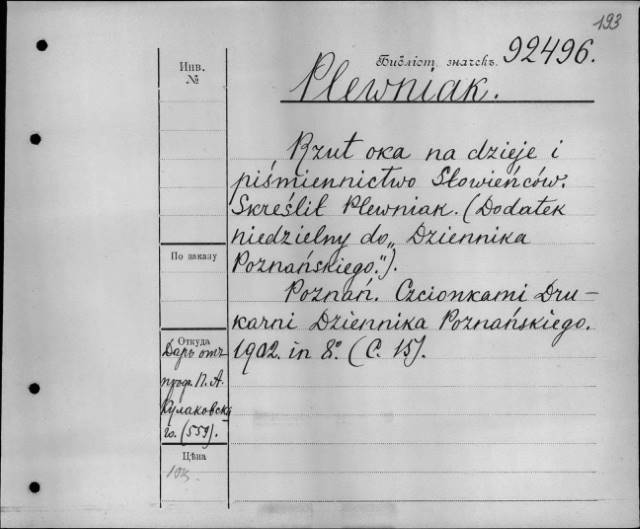 193
Библіот. значекъ. 92496.
Инв.
№
Plewniak.
Rzut oka na dzieje i
piśmiennictwo Słowieńców.
Skreślił Plewniak. (Dodatek
niedzielny do „Dziennika
Poznańskiego.").
Poznań. Czcionkami Dru-
karni Dziennika Poznańskiego.
1902. in 8º. (С. 15).
По заказу
Откуда
Даръ отъ
проф. П. А.
Кулаковска
го. (559).
Цѣна